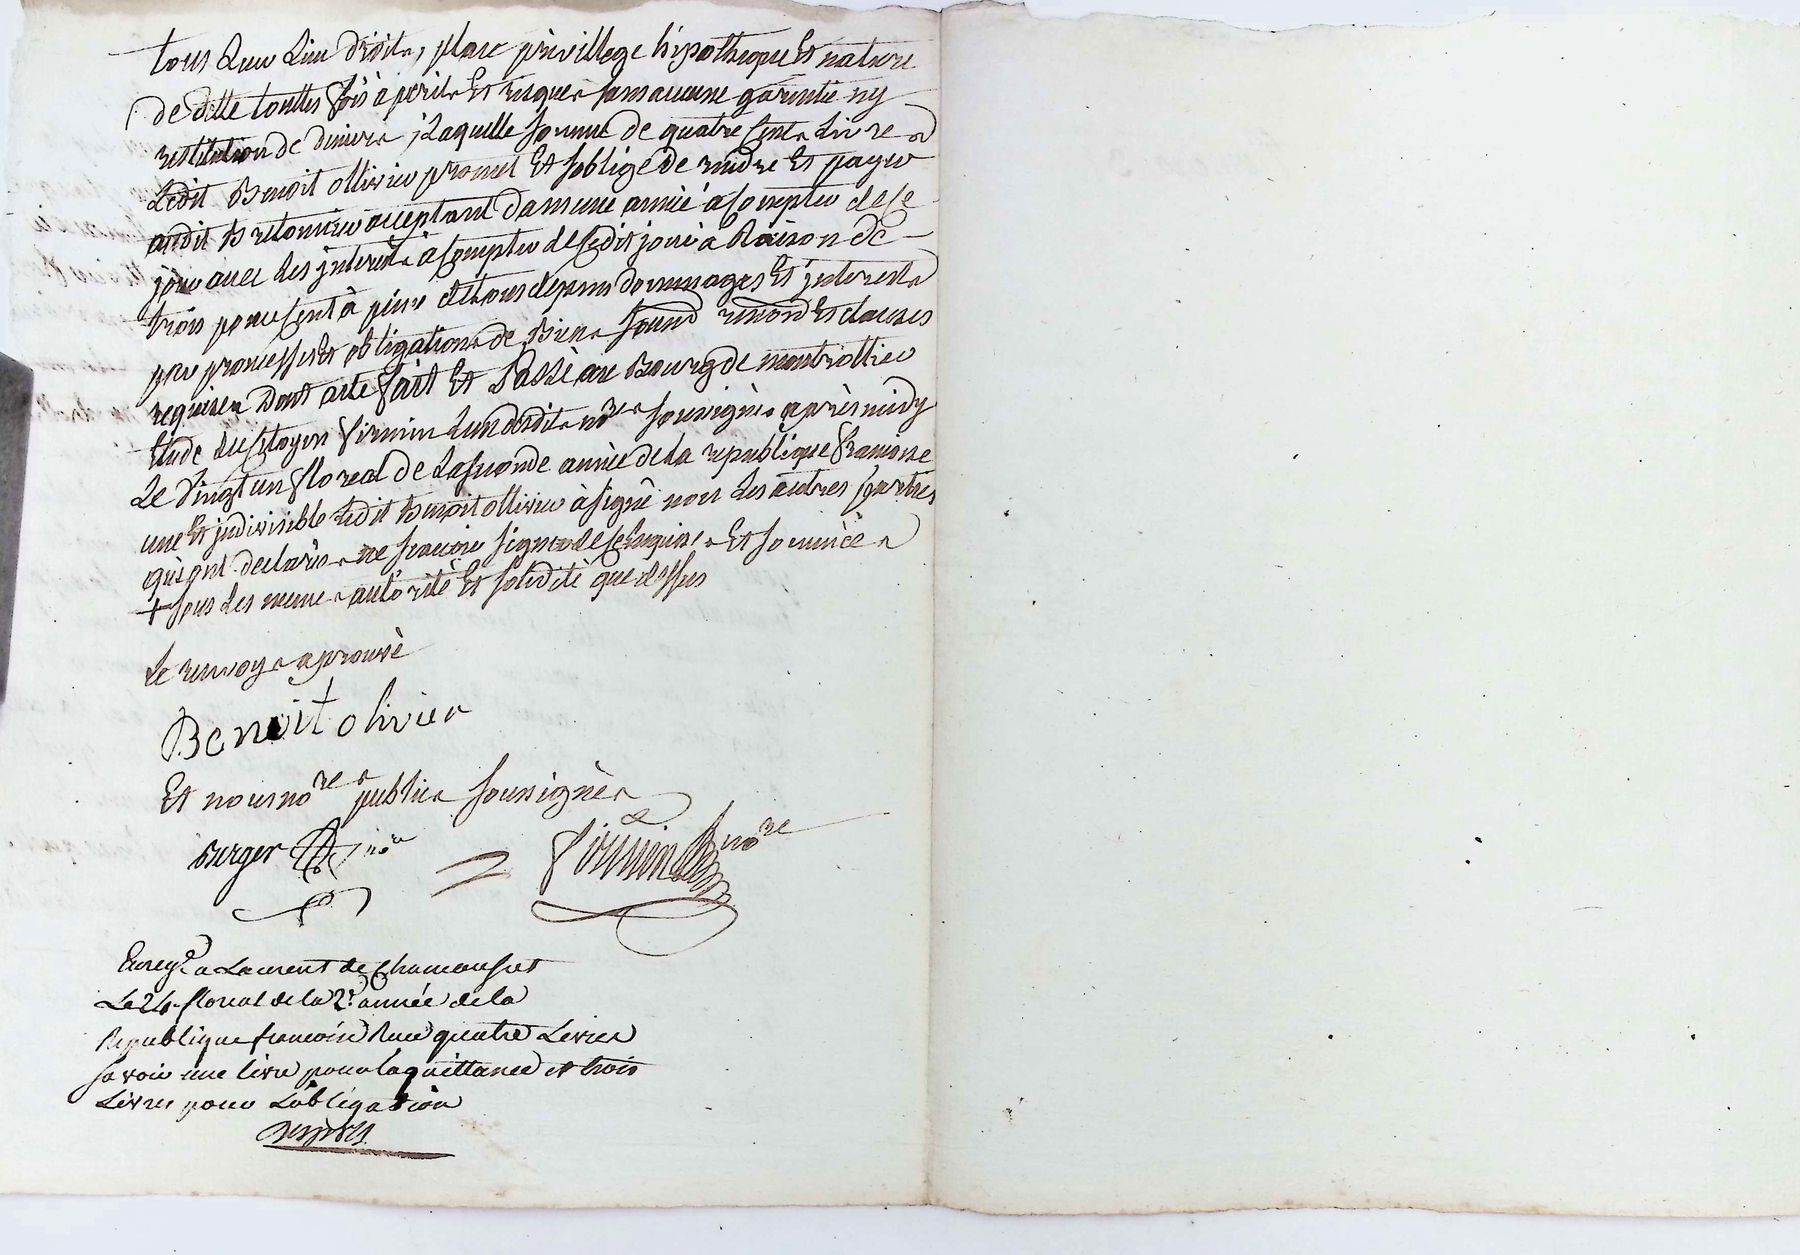 tous Leur Lieu droits, place privillege hypotheque Et nature
de dette touttes fois à perils Et risques sans aucune garentie ny
restitution de deniers, Laquelle somme de quatre Cents Livres
Ledit Benoit ollivier promet Et soblige de rendre Et payer
audit Bretonnier acceptant dans une année à Compter de Ce
jour avec Les jnterets à Compter de Cedit jour à Raison de
trois pour Cent à peine de tous depens dommages Et jnterests
par promesses Et obligations de Biens soumd renond Et clauses
requises Dont acte fait Et Passé au Bourg de montrottier
Etude du Citoyen firmin Lun desdits nores soussignés après midy
Le vingt un floreal de La seconde année de La republique francoise
une Et jndivisible Ledit Benoit ollivier à signé non Les autres parties
qui ont declarés ne scavoir signer de Ce Enquises Et sommées
+ sous Les memes autorité Et solidité que dessus
Le renvoy aprouvé
Benoit olivier
Et nous nores publics soussignés
Berger nore
firmin nore
Enregé a Laurent de Chamousset
Le 24 floreal de la 2e année de la
Republique francoise Recu quatre Livres
savoir une livre pour la quittance et trois
Livres pour Lobligation